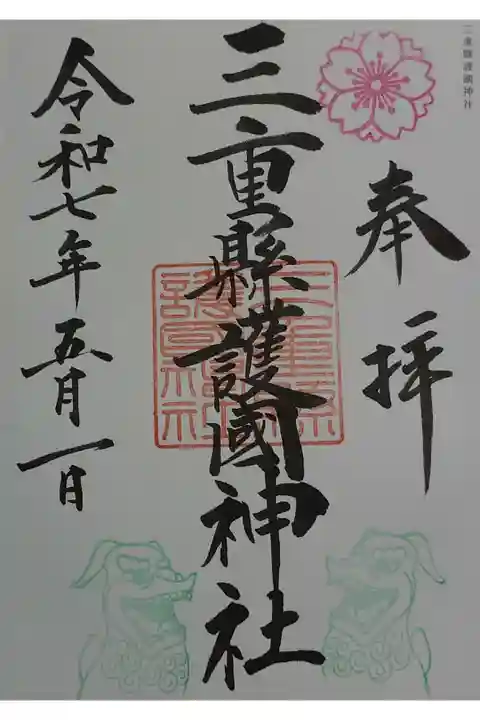 三重縣護國神社
奉拝
三重縣護國神社
三重縣護國神社
令和七年五月一日